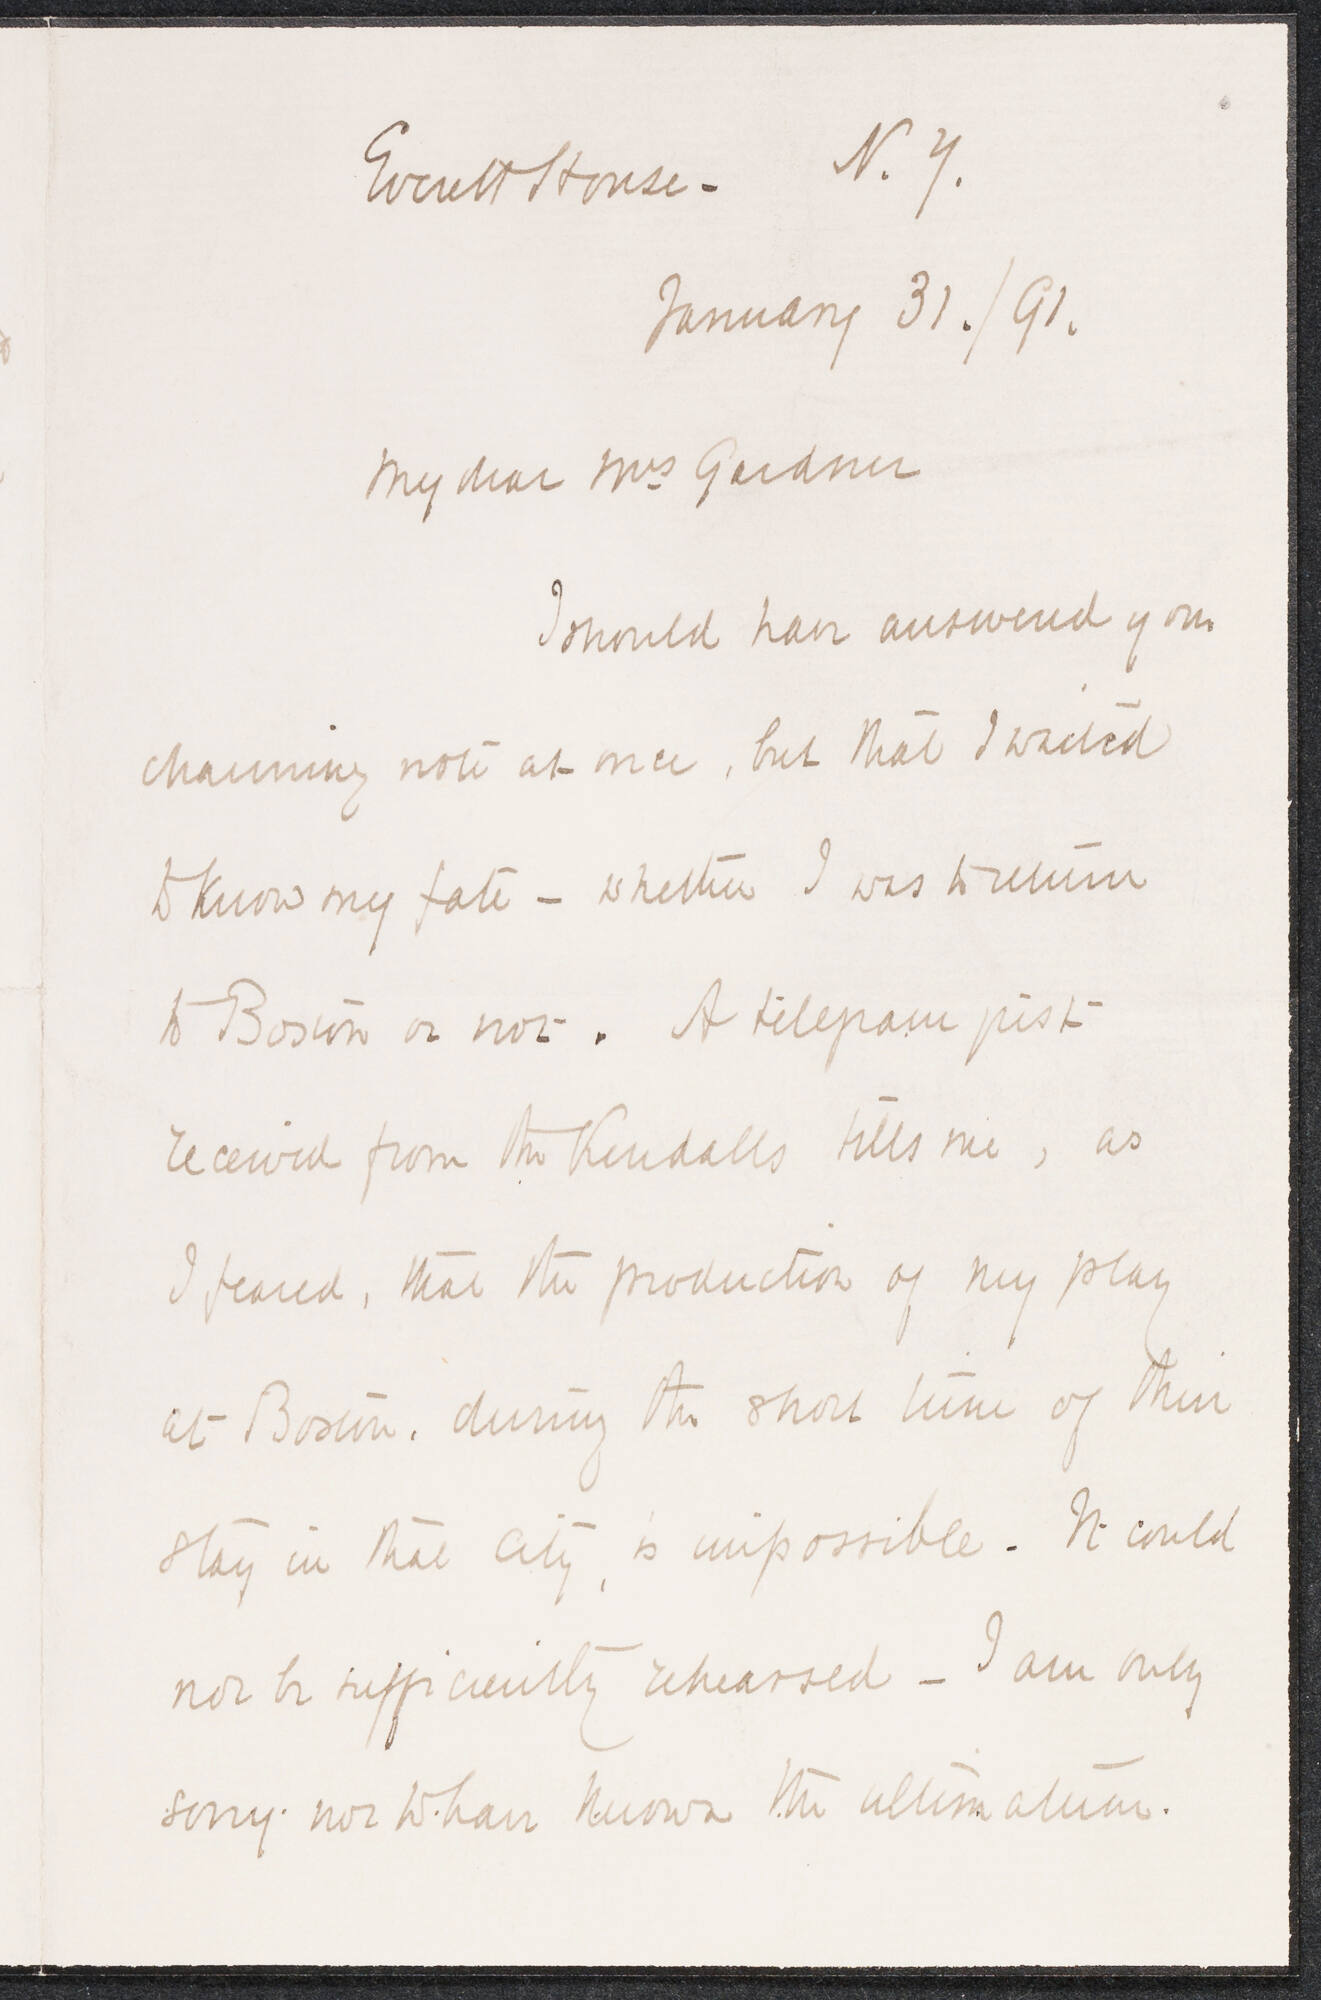 Everett House - N. Y.
January 31. / 91.
My dear Mrs Gardner
I should have answered your
charming note at once, but that I waited
to know my fate - whether I was to return
to Boston or not. A telegram just
received from the Kendalls tells me, as
I feared, that the production of my play
at Boston, during the short time of their
stay in that city, is impossible. It could
not be sufficiently rehearsed - I am only
sorry not to have known the ultimatum.